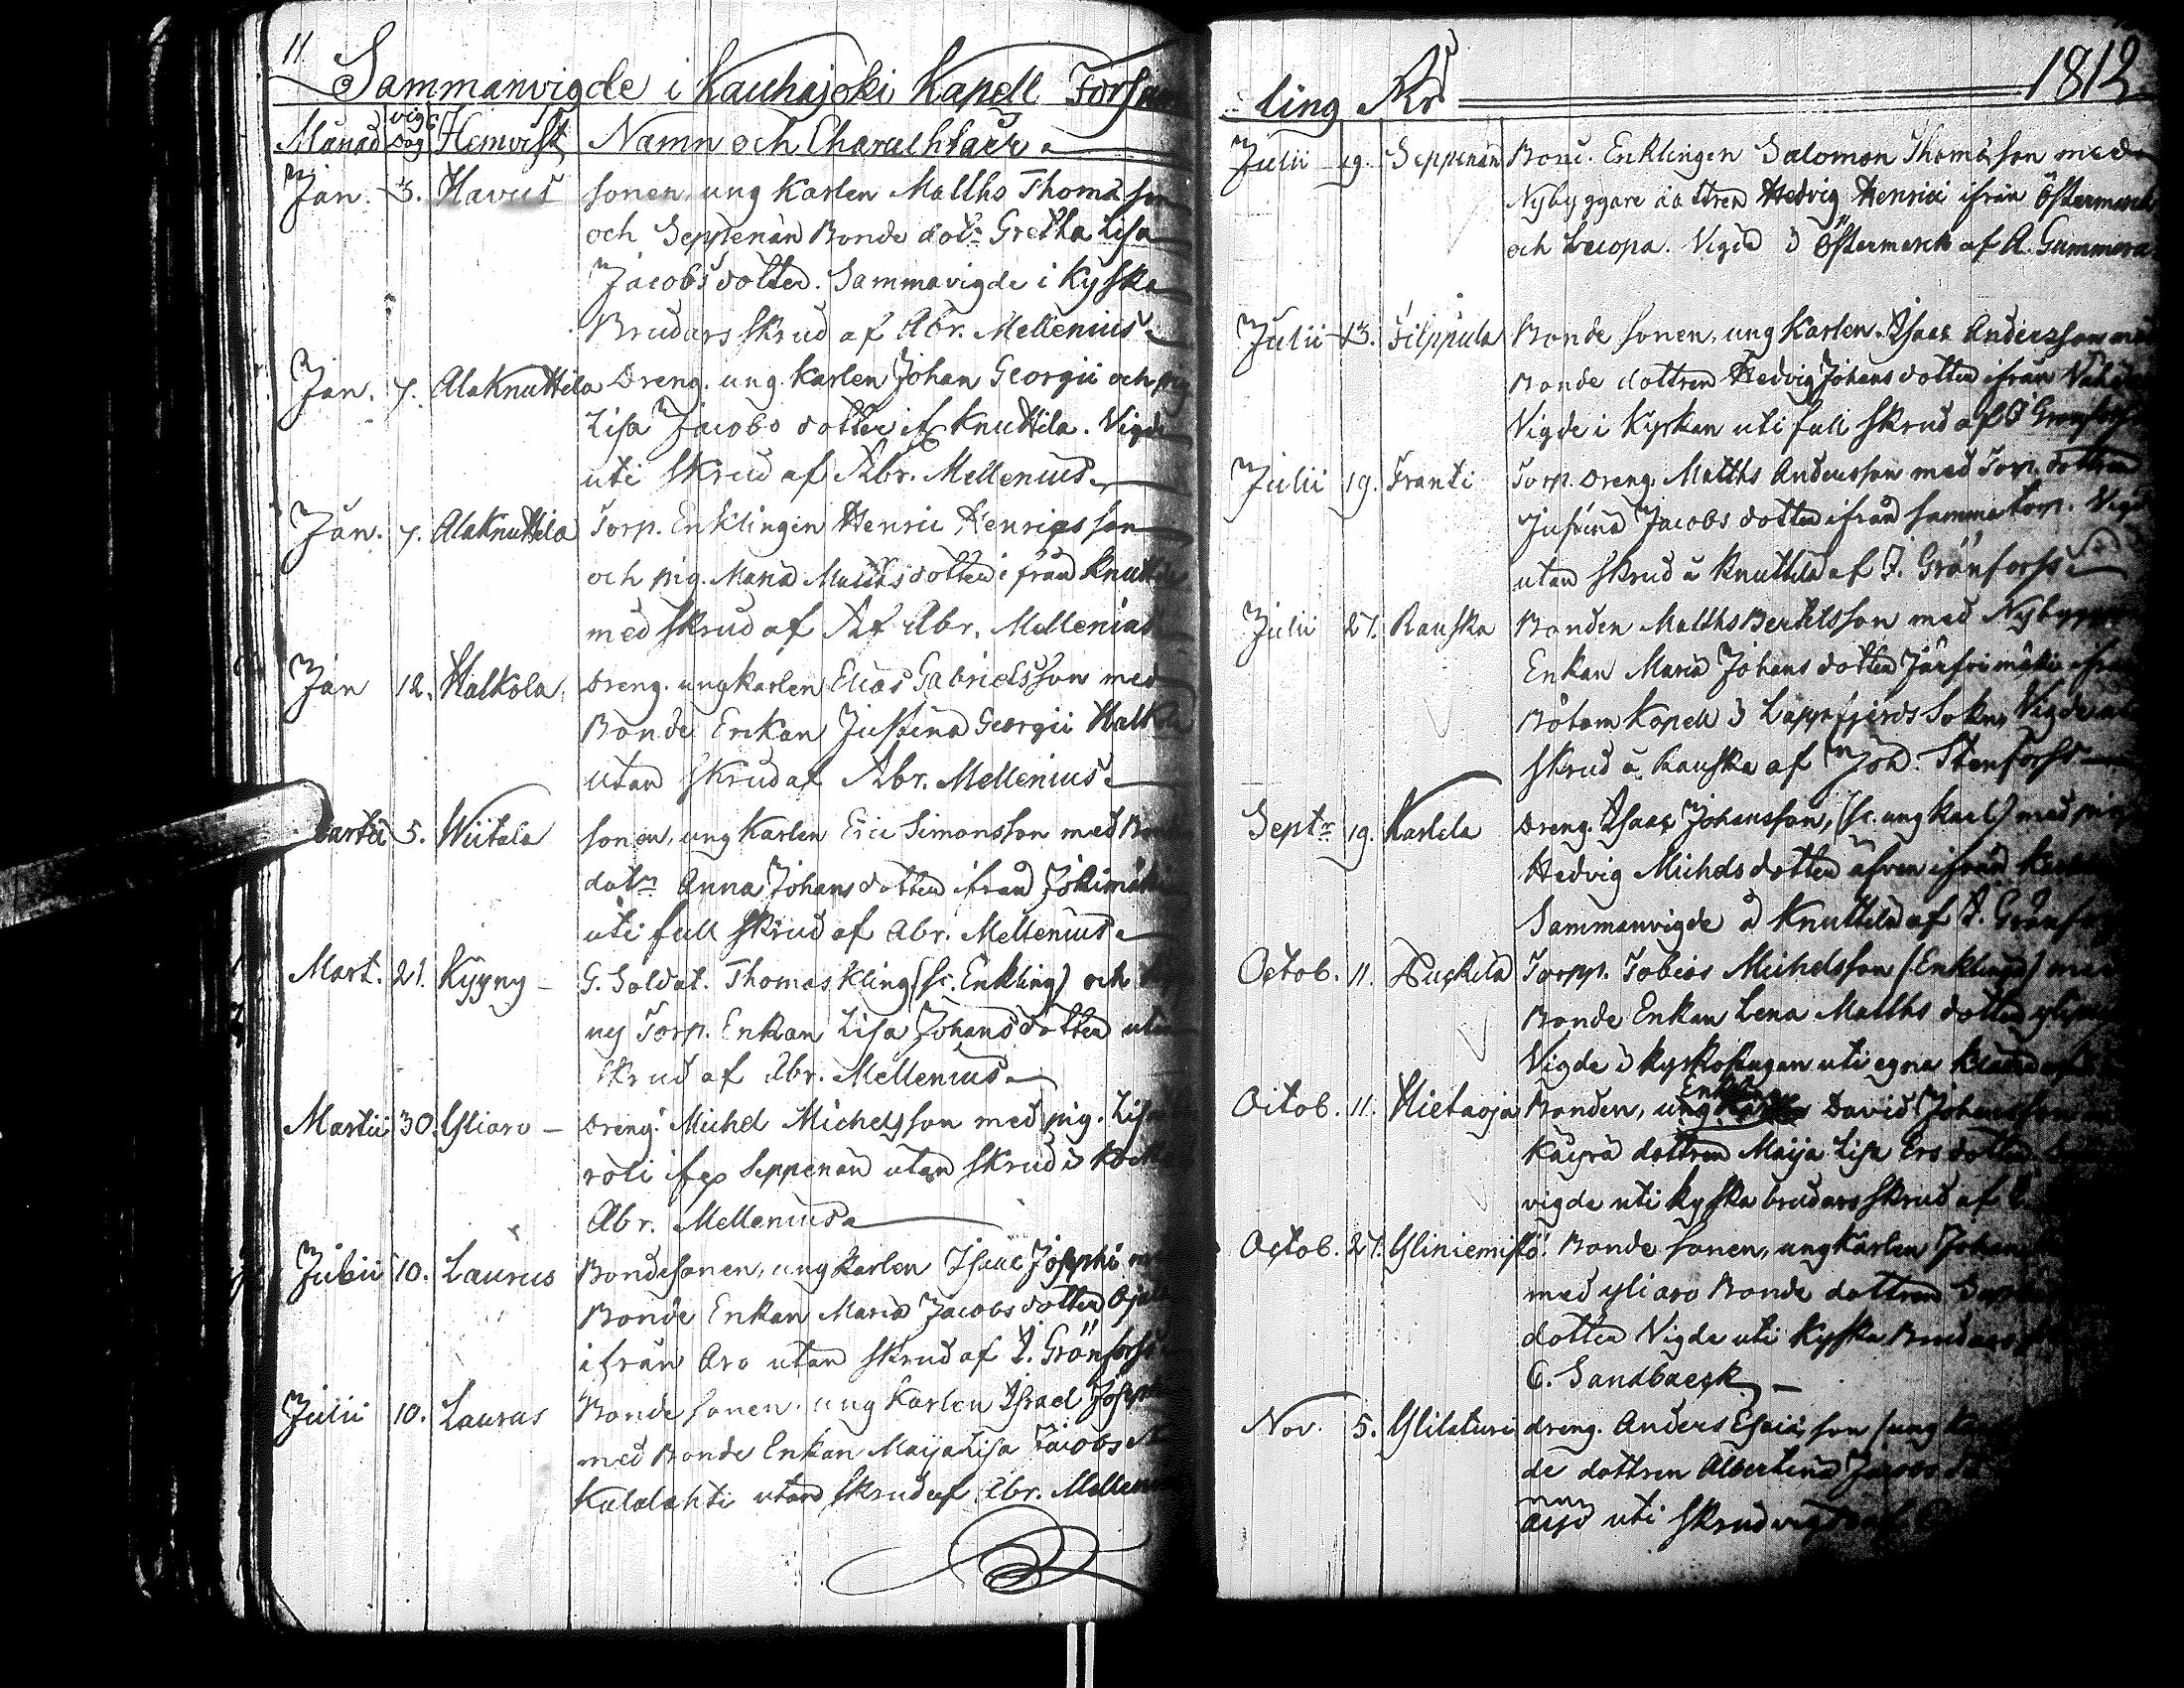 11
Sammanvigde i Kauhajoki Kapell Forsam
Månad vigs Dag Hemvist Namn och Charachtaer
Jan. 3. Havus sonen, ung Karlen Matths Thomæson
och Seppenän Bonde dotr Gretha Lisa
Jacobsdotter. Sammavigde i Kyska
Brudars skrud af Abr. Mellenius
Jan. 7. AlaKnuttila Dreng. ung. Karlen Johan Georgii och pig
Lisa Jacobs dotter if Knuttila. Vigde
uti skrud af Abr. Mellenius
Jan. 7. AlaKnuttila Torp. Enklingen Henric Henricsson
och pig. Maria Matthsdotter ifrån Knuttila
med skrud af Abr. Mellenius
Jan 12. Halkola Dreng. ungkarlen Elias Gabrielsson med
Bonde Enkan Justina Georgii Halkola
utan skrud af Abr. Mellenius
Martii 5. Wiitala sonen, ung Karlen Eric Simonsson med Bonde
dotrn Anna Johansdotter ifrån Jokimäki
uti full skrud af Abr. Mellenius
Mart. 21. Kyyny G. Soldat. Thomas Kling (sc. Enkling) och
ny Torp. Enkan Lisa Johansdotter utan
skrud af Abr. Mellenius
Martii 30. Yliaro Dreng. Michel Michelsson med pig. Lisa
Seppenän utan skrud i
Abr. Mellenius
Julii 10. Laurus Bondesonen, ung karlen Isaac Josephi med
Bonde Enkan Maria Jacobsdotter
ifrån Aro utan skrud af I. Grönforss
Julii 10. Laurus Bonde sonen, ung Karlen Israel Joseph
med Bonde Enkan Maija Lisa Jacobs
Kulalahti utan skrud af Abr. Mellenius
ling År 1812
Julii 19. Seppenän Bond. Enklingen Salomon Thomæson med
Nybyggare dottren Hedvig Henrici ifrån Östermark
och Luopa. Vigde i Östermark af A. Gummerus
Julii 13. Filppula Bonde sonen, ung Karlen Isaac Andersson med
Bonde dottren Hedvig Johansdotter ifrån
Vigde i Kyrkan uti full skrud af I Grönforss
Julii 19. Franti Torp. Dreng. Matths Andersson med Torp. dottren
Justina Jacobs dotter ifrån samma torp. Vigd
utan skrud å Knuttila af I. Grönforss
Julii 27. Rauska Bonden Matths Bertilsson med Nybygg
Enkan Maria Johansdotter
Bötom Kapell i Lappfjerds Sokn, Vigde utan
skrud å Rauska af Joh. Stenforss
Septr 19. Karlela Dreng. Isaac Johansson, (sc. ung karl) med pig
Hedvig Michelsdotter äfven ifrån
Sammanvigde å Knuttila af I. Grönf
Octob. 11. Torpp. Tobias Michelsson (Enklingen) med
Bonde Enkan Lena Matths dotter
Vigde i kyrkostugan uti egna kläder
Octob. 11. Hietaoja Bonden, Enkl David Johansson
Käyrä dottren Maija Lisa Ersdotter
vigde uti kyska brudars skrud af
Octob. 27. Yliniemistö Bonde sonen, ung Karlen Johan
med yliaro Bonde dottren
dotter Vigde uti Kyska Brudars
C. Sandbaeck
Nov. 5. Ylilaturi dreng. Anders Esaiæson (ung
de dottren Albertina Jacobs
uti skrud vigd